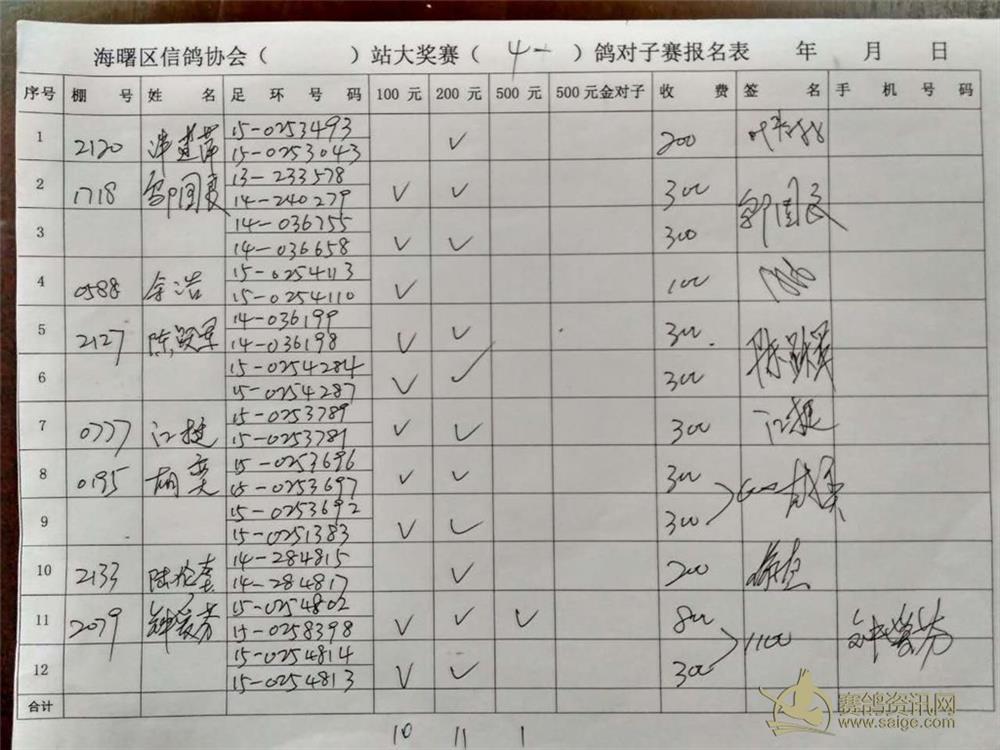 海曙区信鸽协会（ ）站大奖赛（ 4一 ）鸽对子赛报名表 年 月 日
序号 棚号 姓名 足环号码 100元 200元 500元 500元金对子 收费 签名 手机号码
1 2120 15-0253493 ✓ 200
15-0253043
2 1718 邹国良 13-233578 ✓ ✓ 300 邹国良
14-240279
3 14-036755 ✓ ✓ 300
14-036658
4 0588 余浩 15-0254113 ✓ 100
15-0254110
5 2127 14-036199 ✓ ✓ 300
14-036198
6 15-0254284 ✓ ✓ 300
15-0254287
7 0777 江挺 15-0253789 ✓ ✓ 300 江挺
15-0253781
8 0195 胡奕 15-0253696 ✓ ✓ 300 600 胡奕
15-0253697
9 15-0253692 ✓ ✓ 300
15-0251383
10 2133 14-284815 ✓ 200
14-284817
11 2079 15-0254802 ✓ ✓ ✓ 800 1100
15-0258398
12 15-0254814 ✓ ✓ 300
15-0254813
合计
10 11 1
赛鸽资讯网
www.saige.com